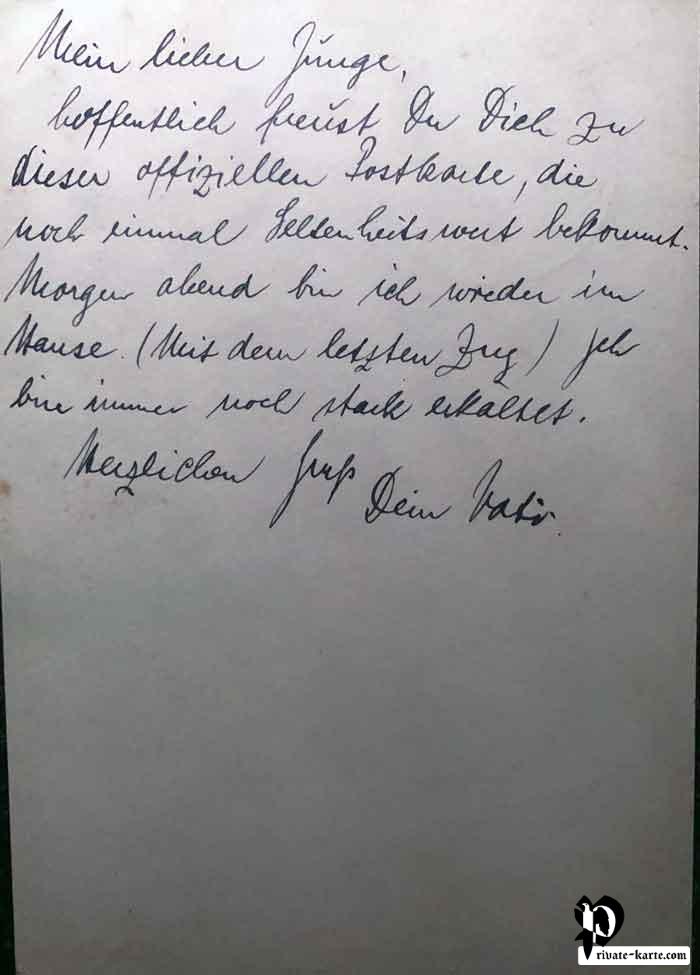 Mein lieber Junge,
hoffentlich freust Du Dich zu
dieser offiziellen Postkarte, die
noch einmal Seltenheitswert bekommt.
Morgen abend bin ich wieder im
Hause. (Mit dem letzten Zug) Ich
bin immer noch stark erkältet.
Herzlichen Gruß
Dein Vati.
private-karte.com